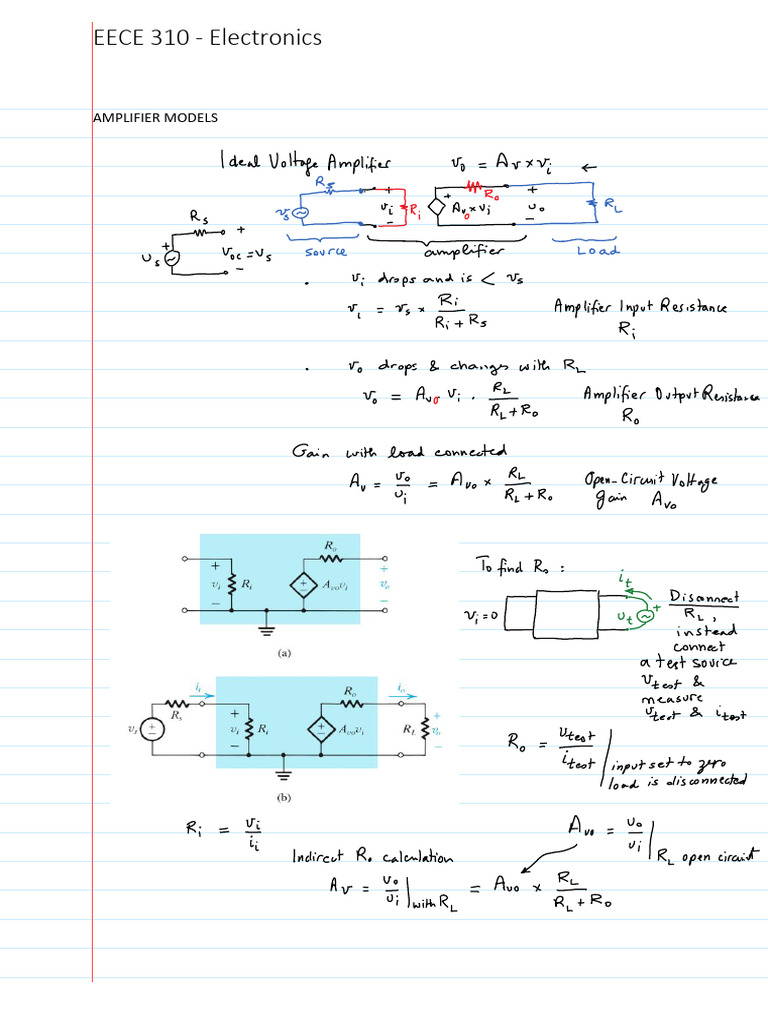 EECE 310 - Electronics
AMPLIFIER MODELS
Ideal Voltage Amplifier v₀ = Av × vi ←
Rs
+ + Ro +
vs vi Ri Avo × vi vo RL
- -
source amplifier Load
Rs +
+
vs Voc = vs
-
. vi drops and is < vs
vi = vs × Ri / (Ri + Rs) Amplifier Input Resistance
Ri
. vo drops & changes with RL
vo = Avo vi . RL / (RL + Ro) Amplifier Output Resistance
Ro
Gain with load connected
Av = vo / vi = Avo × RL / (RL + Ro) Open-Circuit Voltage
gain Avo
Ro
+ +
vi Ri + - Avovi vo
- -
(a)
To find Ro :
it
vi = 0 vt +
Disconnect
RL,
instead
connect
a test source
vtest &
measure
vtest & itest
ii Ro io
Rs + +
vs + - vi Ri + - Avovi RL vo
- -
(b)
Ro = vtest / itest | input set to zero
load is disconnected
Ri = vi / ii
Avo = vo / vi | RL open circuit
Indirect Ro calculation
Av = vo / vi | with RL = Avo × RL / (RL + Ro)